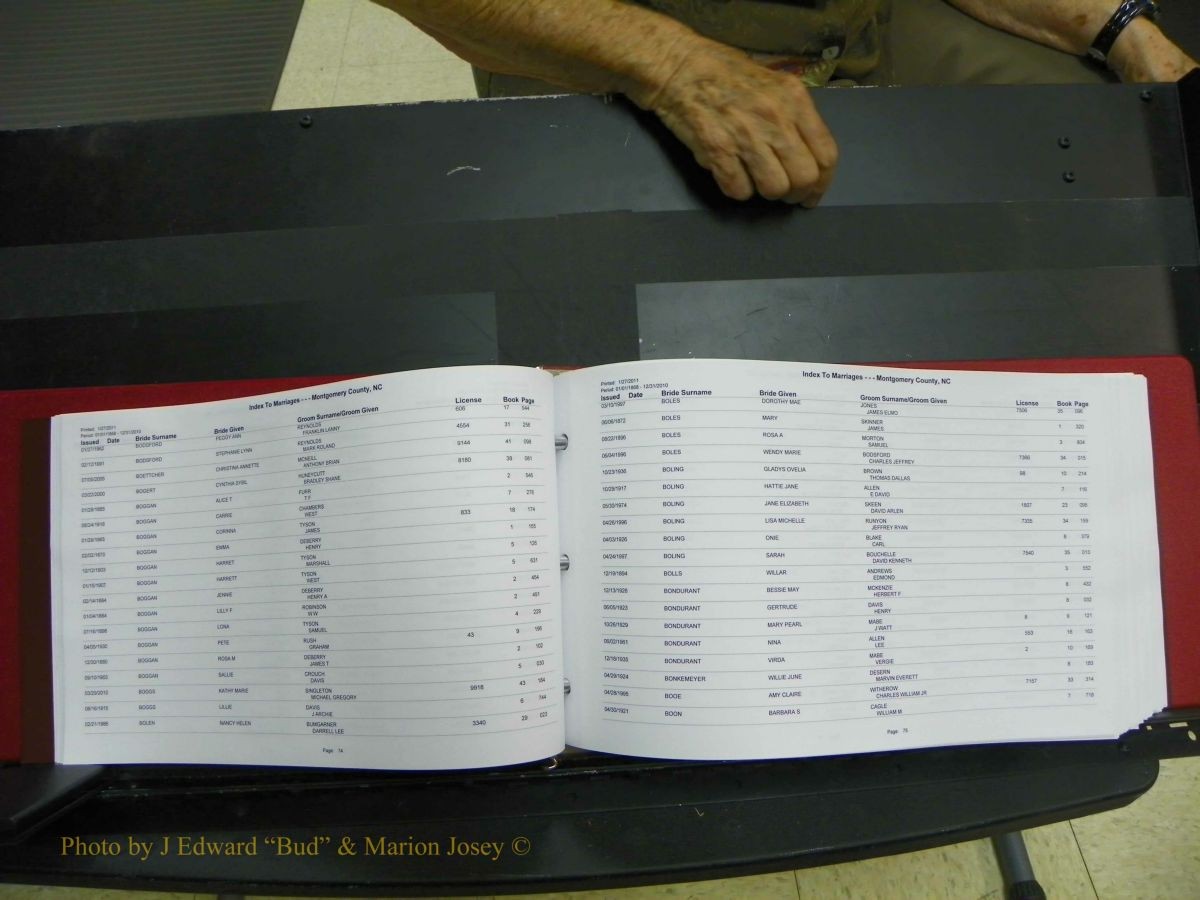 Index To Marriages - - - Montgomery County, NC
Printed: 1/27/2011
Period: 01/01/1868 - 12/31/2010
Issued Date Bride Surname Bride Given Groom Surname/Groom Given License Book Page
01/27/1962 BODSFORD PEGGY ANN REYNOLDS 606 17 544
FRANKLIN LANNY
02/12/1991 BODSFORD STEPHANIE LYNN REYNOLDS 4554 31 256
MARK ROLAND
BOETTCHER CHRISTINA ANNETTE MCNEILL 9144 41 098
ANTHONY BRIAN
03/22/2000 BOGERT CYNTHIA SYBIL HUNEYCUTT 8180 38 081
BRADLEY SHANE
BOGGAN ALICE T FURR 2 545
T F
BOGGAN CARRIE CHAMBERS 7 276
WEST
BOGGAN CORINNA TYSON 833 18 174
JAMES
BOGGAN EMMA DEBERRY 1 155
HENRY
BOGGAN HARRET TYSON 5 126
MARSHALL
BOGGAN HARRETT TYSON 5 631
WEST
BOGGAN JENNIE DEBERRY 2 484
HENRY A
BOGGAN LILLY F ROBINSON 2 461
W W
BOGGAN LONA TYSON 4 229
SAMUEL
BOGGAN PETE RUSH 43 9 196
GRAHAM
BOGGAN ROSA M DEBERRY 2 102
JAMES T
BOGGAN SALLIE CROUCH 5 030
DAVIS
03/29/2010 BOGGS KATHY MARIE SINGLETON 9918 43 184
MICHAEL GREGORY
BOGGS LILLIE DAVIS 6 744
J ARCHIE
BOLEN NANCY HELEN BUMGARNER 3340 29 022
DARRELL LEE
Page: 74
Index To Marriages - - - Montgomery County, NC
Printed: 1/27/2011
Period: 01/01/1868 - 12/31/2010
Issued Date Bride Surname Bride Given Groom Surname/Groom Given License Book Page
BOLES DOROTHY MAE JONES 7506 35
JAMES ELMO
06/06/1872 BOLES MARY SKINNER 1 320
JAMES
08/22/1896 BOLES ROSA A MORTON 3 934
SAMUEL
BOLES WENDY MARIE BODSFORD 7366 34 215
CHARLES JEFFREY
10/23/1936 BOLING GLADYS OVELIA BROWN 98 10 214
THOMAS DALLAS
10/29/1917 BOLING HATTIE JANE ALLEN 7 116
E DAVID
05/30/1974 BOLING JANE ELIZABETH SKEEN 1807 23 098
DAVID ARLEN
04/26/1996 BOLING LISA MICHELLE RUNYON 7335 34 159
JEFFREY RYAN
04/03/1926 BOLING ONIE BLAKE 8 379
CARL
04/24/1997 BOLING SARAH BOUCHELLE 7540 35 015
DAVID KENNETH
12/19/1894 BOLLS WILLAR ANDREWS 3 552
EDMOND
12/13/1926 BONDURANT BESSIE MAY MCKENZIE 8 432
HERBERT F
06/05/1923 BONDURANT GERTRUDE DAVIS 8 032
HENRY
10/26/1929 BONDURANT MARY PEARL MABE 8 9 121
J WATT
BONDURANT NINA ALLEN 553 16 163
LEE
BONDURANT VIRDA MABE 2 10 189
VERGIE
04/29/1924 BONKEMEYER WILLIE JUNE DESERN 8 183
MARVIN EVERETT
04/28/1995 BOOE AMY CLAIRE WITHEROW 7157 33 314
CHARLES WILLIAM JR
04/30/1921 BOON BARBARA S CAGLE 7 718
WILLIAM M
Page: 75
Photo by J Edward “Bud” & Marion Josey ©